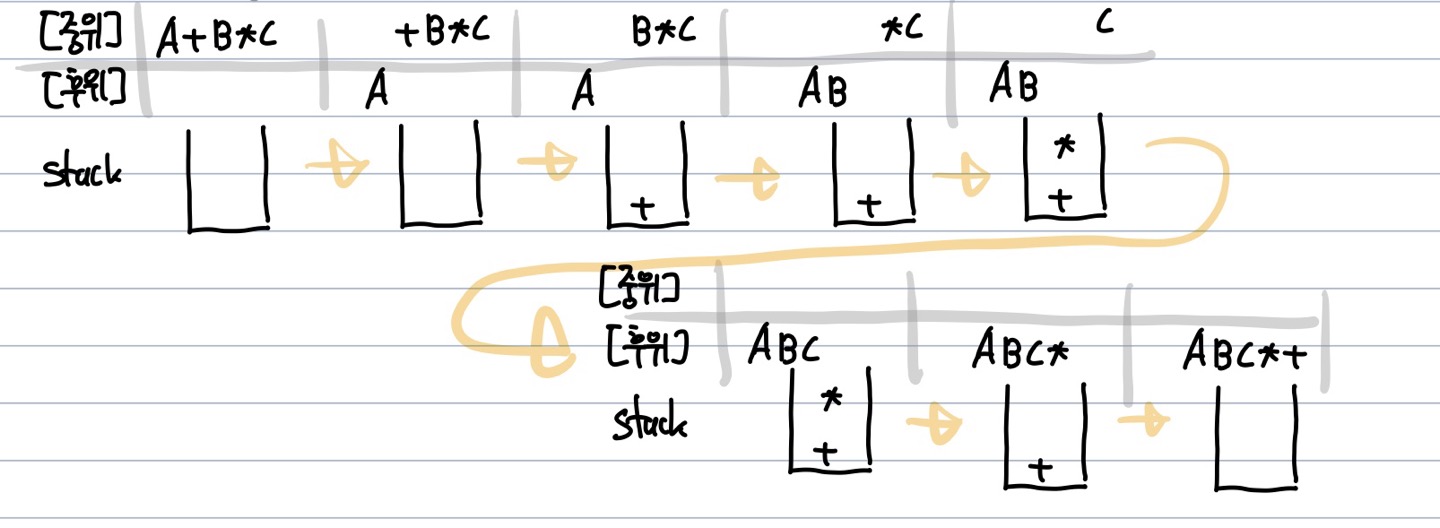 [중위] A+B*C +B*C B*C *C C
[후위] A A AB AB
stack + + * +
[중위]
[후위] ABC ABC* ABC*+
stack * + +